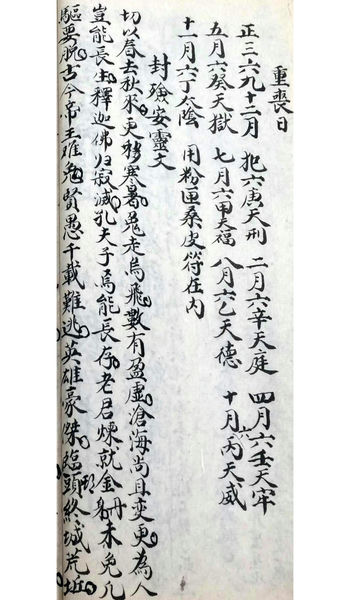 重喪日
正三六九十二月 犯六庚天刑 二月六辛天庭 四月六壬天牢
五月六癸天獄 七月六甲天福 八月六乙天德 十月六丙天威
十一月六丁人陰 用粉匣桑皮符在内
封殮安靈文
切以春去秋來更移寒暑兔走烏飛數有盈虛滄海尚且變更為人
豈能長生釋迦佛归寂滅孔夫子焉能長存老君煉就金丹未免几
驅要脱古今帝王难免賢愚千載難逃英雄豪傑臨頭終城荒坵